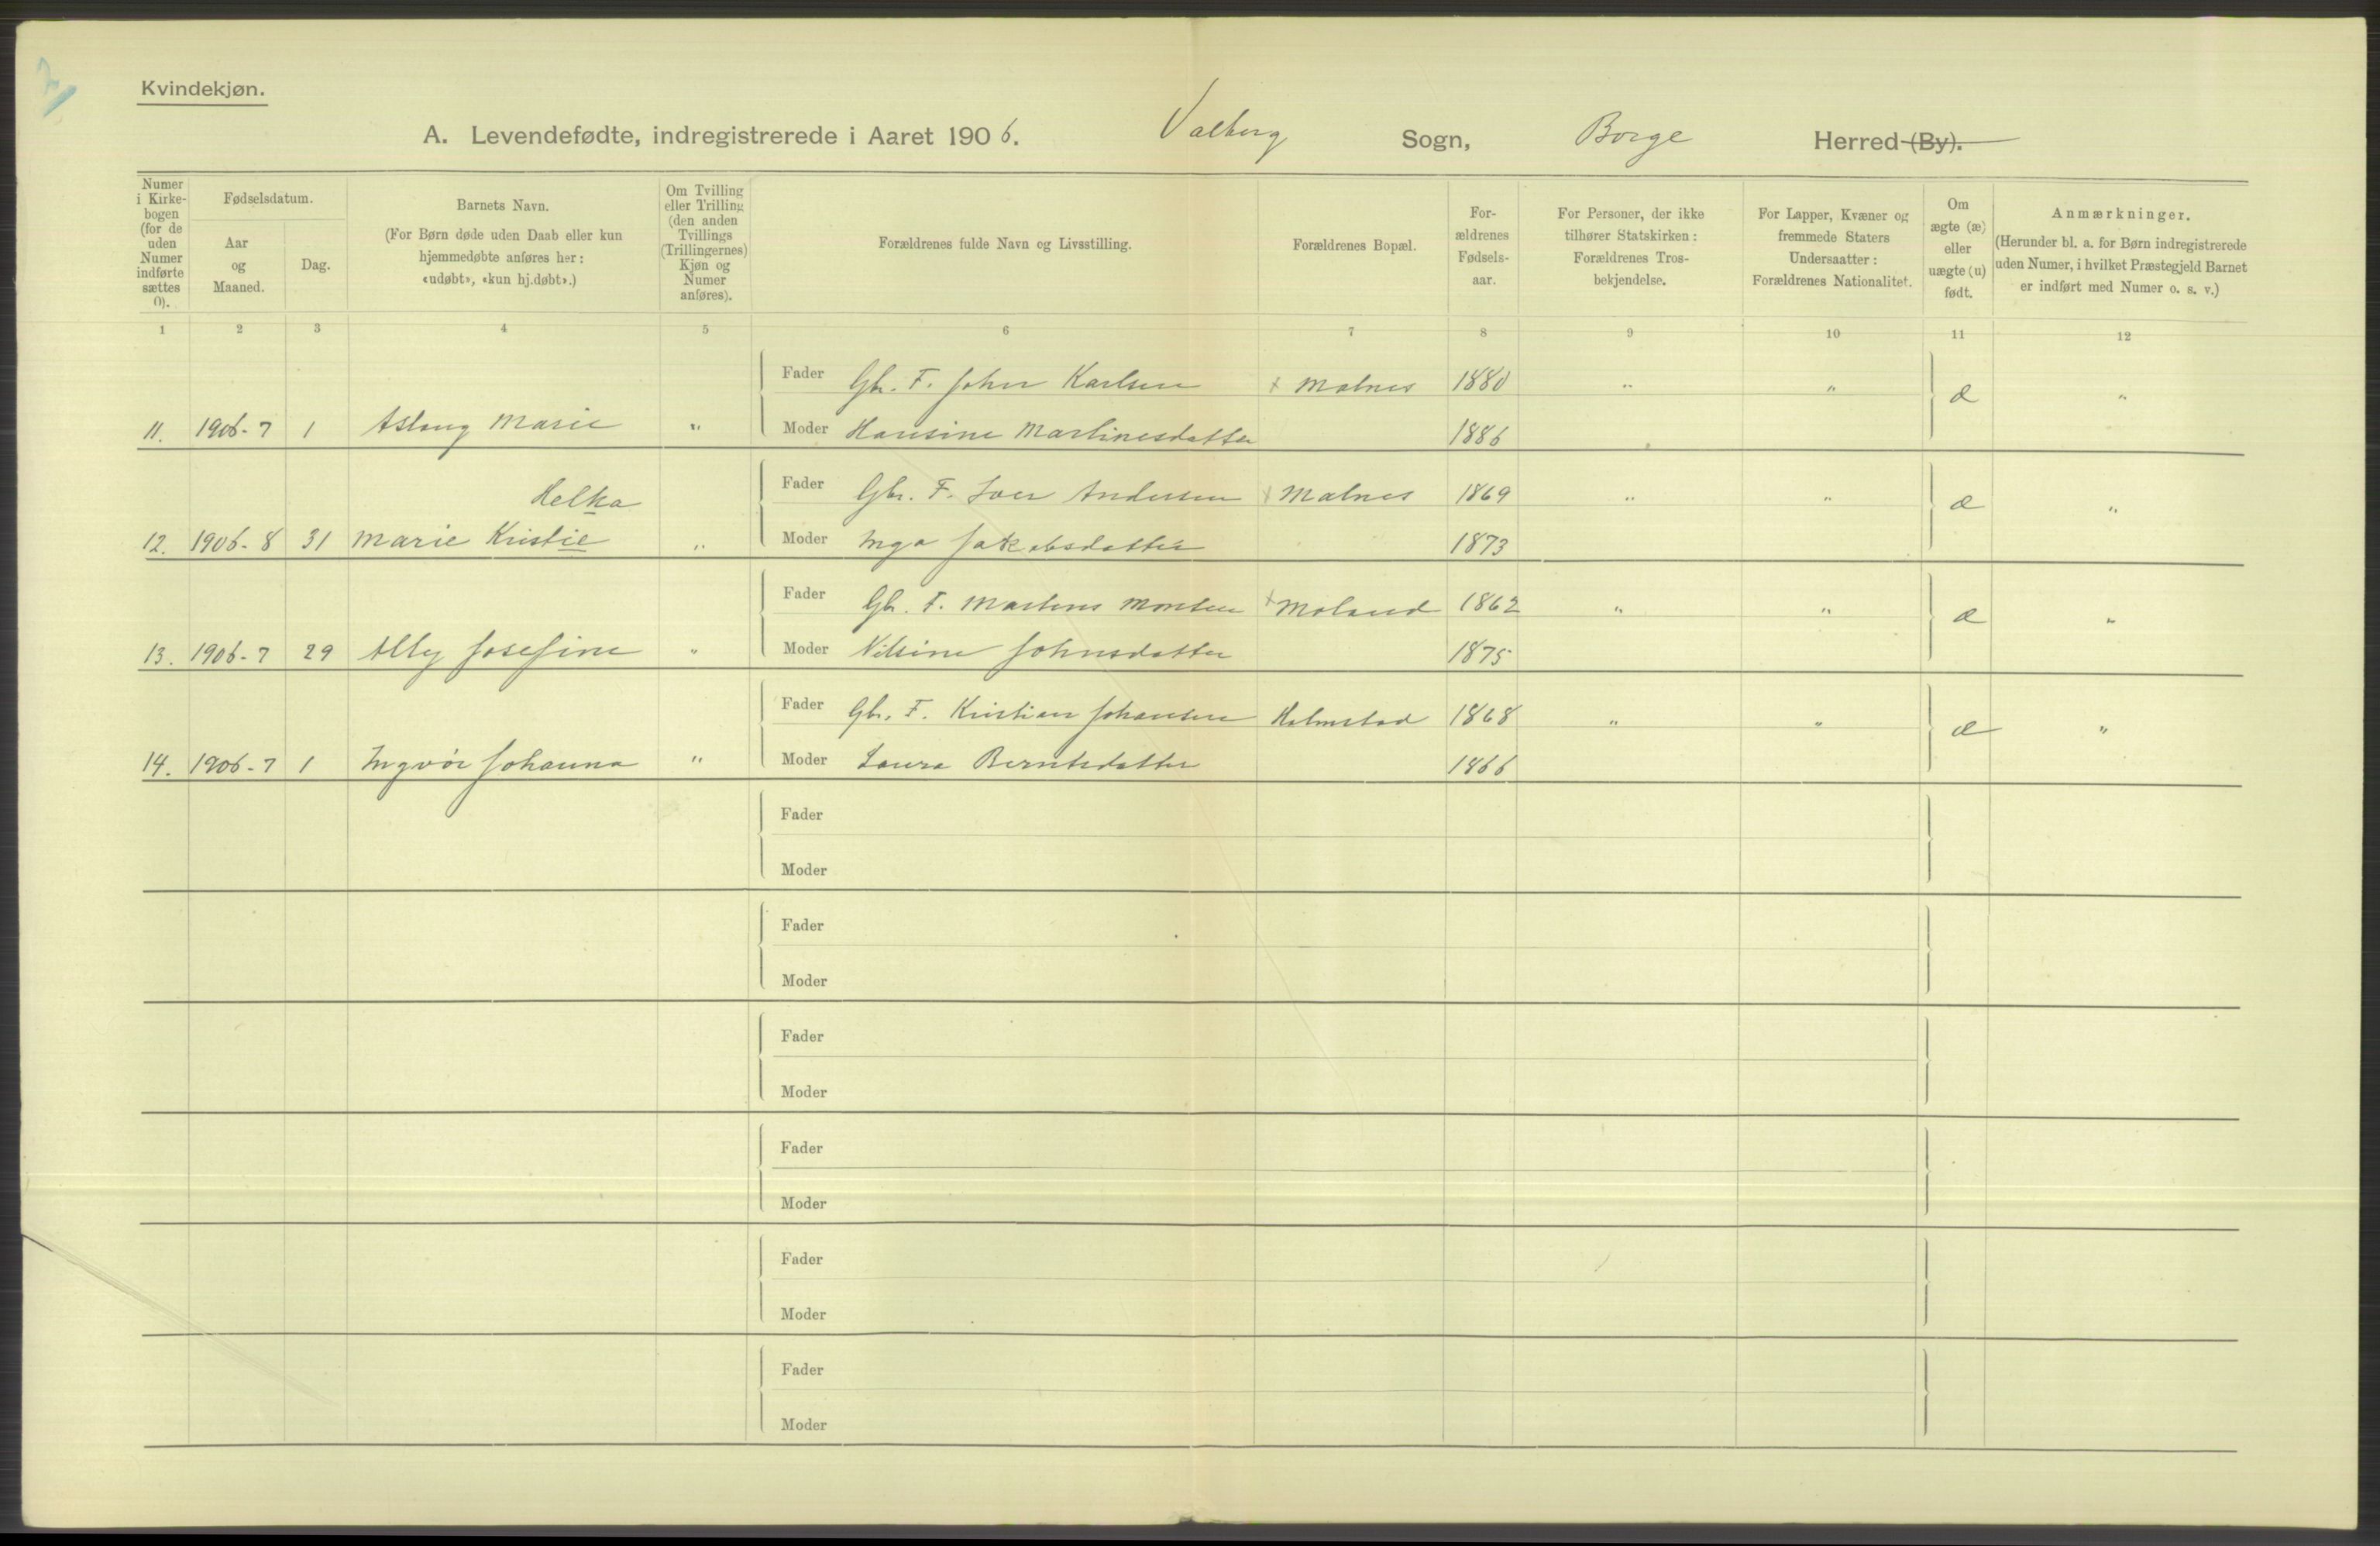 Kvindekjøn.
A. Levendefødte, indregistrerede i Aaret 1906. Valberg Sogn, Borge Herred (By).
Numer i Kirke-bogen (for de uden Numer indførte sættes 0).
Fødselsdatum.
Aar og Maaned.
Dag.
Barnets Navn.
(For Børn døde uden Daab eller kun hjemmedøbte anføres her: «udøbt», «kun hj.døbt».)
Om Tvilling eller Trilling (den anden Tvillings (Trillingernes) Kjøn og Numer anføres).
Forældrenes fulde Navn og Livsstilling.
Forældrenes Bopæl.
For-ældrenes Fødsels-aar.
For Personer, der ikke tilhører Statskirken: Forældrenes Tros-bekjendelse.
For Lapper, Kvæner og fremmede Staters Undersaatter: Forældrenes Nationalitet.
Om ægte (æ) eller uægte (u) født.
Anmærkninger.
(Herunder bl. a. for Børn indregistrerede uden Numer, i hvilket Præstegjeld Barnet er indført med Numer o. s. v.)
1 2 3 4 5 6 7 8 9 10 11 12
Fader Gbr. F. John Karlsen x Malnes 1880 " " æ "
11. 1906-7 1 Aslaug Marie " Moder Hansine Martinesdatter 1886
Helka Fader Gbr. F. Iver Andersen x Malnes 1869 " " æ "
12. 1906-8 31 Marie Kristie " Moder Inga Jakobsdatter 1873
Fader Gbr. F. Martens x Moland 1862 " " æ "
13. 1906-7 29 Ally Josefine " Moder Nilsine Johnsdatter 1875
Fader Gbr. F. Kristian Johansen Holmstad 1868 " " æ "
14. 1906-7 1 Ingvór Johanna " Moder Laura Berntsdatter 1866
Fader
Moder
Fader
Moder
Fader
Moder
Fader
Moder
Fader
Moder
Fader
Moder